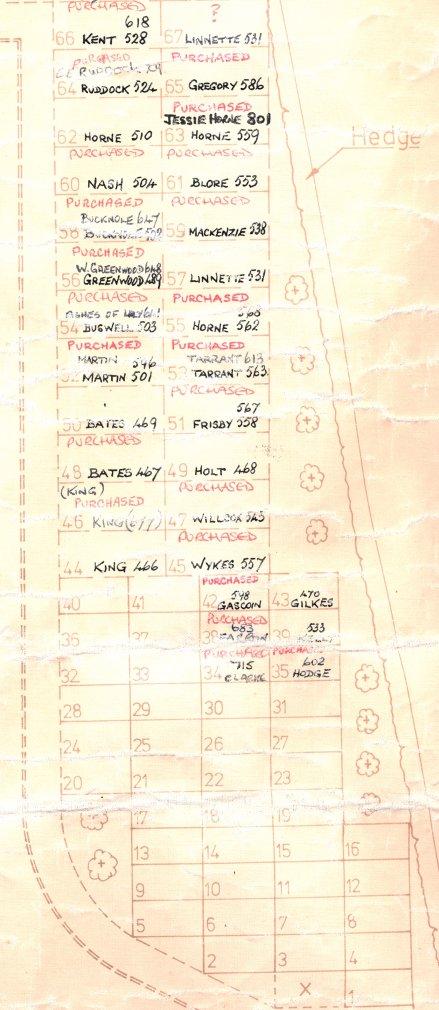 PURCHASED ?
618
66 KENT 528 67 LINNETTE 531
PURCHASED PURCHASED
RUDDOCK 709
64 RUDDOCK 524 65 GREGORY 586
PURCHASED
JESSIE HORNE 801
62 HORNE 510 63 HORNE 559
PURCHASED PURCHASED
Hedge
60 NASH 504 61 BLORE 553
PURCHASED PURCHASED
BUCKNOLE 647
58 59 MACKENZIE 538
PURCHASED
W. GREENWOOD 648
56 GREENWOOD 489 57 LINNETTE 531
PURCHASED PURCHASED
ASHES OF 568
54 BUSWELL 503 55 HORNE 562
PURCHASED PURCHASED
MARTIN 546 TARRANT 613
52 MARTIN 501 53 TARRANT 563
PURCHASED
567
50 BATES 469 51 FRISBY 558
PURCHASED
48 BATES 467 49 HOLT 468
(KING) PURCHASED
PURCHASED
46 KING (677) 47 WILLCOX 545
PURCHASED
44 KING 466 45 WYKES 557
PURCHASED
40 41 42 598 GASCOIN 43 470 GILKES
PURCHASED
36 37 38 683 39 533
PURCHASED PURCHASED
32 33 34 715 CLARKE 35 602 HODGE
28 29 30 31
24 25 26 27
20 21 22 23
17 18 19
13 14 15 16
9 10 11 12
5 6 7 8
2 3 4
X 1